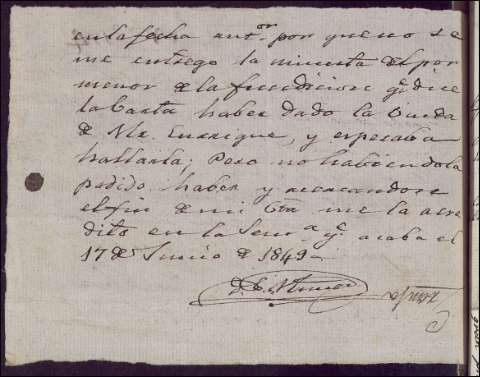 en la fecha ant.or por que no se
me entrego la minuta del por
menor de la fundicion q.e dice
la Carta haber dado la Viuda
de Mr. Enrrique, y esperaba
hallarla; Pero no habiendola
podido haber y acercandose
el fin de mi Cta me la acre
dito en la Sem.a q.e acaba el
17 de Junio de 1849